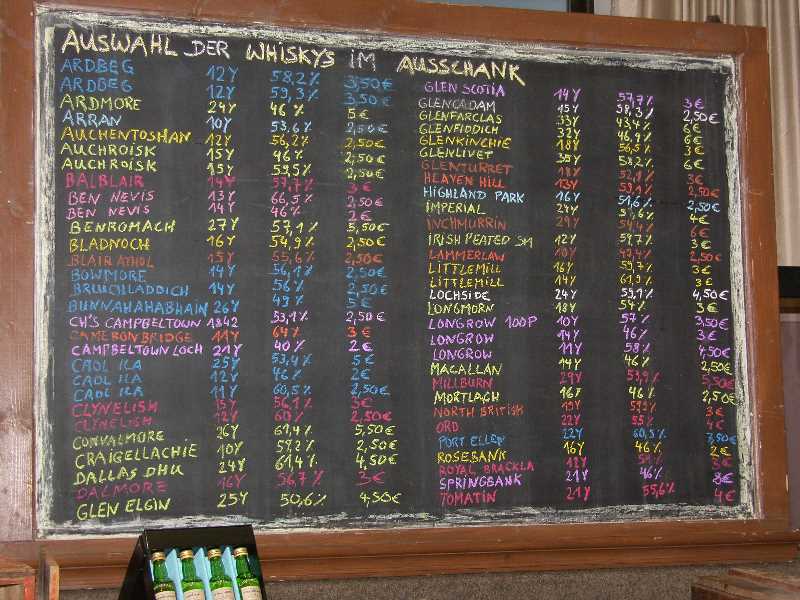 AUSWAHL DER WHISKYS IM AUSSCHANK
ARDBEG 12Y 58,2% 3,50€
ARDBEG 12Y 59,3% 3,50€
ARDMORE 24Y 46% 5€
ARRAN 10Y 53,6% 2,50€
AUCHENTOSHAN 12Y 56,2% 2,50€
AUCHROISK 15Y 46% 2,50€
AUCHROISK 15Y 59,5% 2,50€
BALBLAIR 14Y 57,7% 3€
BEN NEVIS 13Y 66,5% 2,50€
BEN NEVIS 14Y 46% 2€
BENROMACH 27Y 57,1% 5,50€
BLADNOCH 16Y 54,9% 2,50€
BLAIR ATHOL 15Y 55,6% 2,50€
BOWMORE 14Y 56,1% 2,50€
BRUICHLADDICH 14Y 56% 2,50€
BUNNAHAHABHAIN 26Y 49% 5€
CH'S CAMPBELTOWN 1842 53,1% 2,50€
CAMERONBRIDGE 11Y 64% 3€
CAMPBELTOWN LOCH 21Y 40% 2€
CAOL ILA 25Y 53,4% 5€
CAOL ILA 12Y 46% 2€
CAOL ILA 11Y 60,5% 2,50€
CLYNELISH 15Y 56,1% 3€
CLYNELISH 12Y 60% 2,50€
CONVALMORE 26Y 61,4% 5,50€
CRAIGELLACHIE 10Y 59,2% 2,50€
DALLAS DHU 24Y 61,4% 4,50€
DALMORE 16Y 56,7% 3€
GLEN ELGIN 25Y 50,6% 4,50€
GLEN SCOTIA 14Y 57,7% 3€
GLENCADAM 15Y 58,3% 2,50€
GLENFARCLAS 33Y 43,4% 6€
GLENFIDDICH 32Y 46,9% 6€
GLENKINCHIE 18Y 56,5% 3€
GLENLIVET 35Y 58,2% 6€
GLENTURRET 18Y 52,1% 3€
HEAVEN HILL 13Y 59,1% 2,50€
HIGHLAND PARK 16Y 51,6% 2,50€
IMPERIAL 24Y 4€
INCHMURRIN 54,4% 6€
IRISH PEATED SM 12Y 59,7% 3€
LAMMERLAW 10Y 2,50€
LITTLEMILL 16Y 59,7% 3€
LITTLEMILL 14Y 61,9% 3€
LOCHSIDE 24Y 59,1% 4,50€
LONGMORN 18Y 54% 3€
LONGROW 100P 10Y 57% 3,50€
LONGROW 14Y 46% 3€
LONGROW 11Y 58% 4,50€
MACALLAN 14Y 46% 2,50€
MILLBURN 29Y 53,9% 5,50€
MORTLACH 16Y 46% 2,50€
NORTH BRITISH 3€
ORD 22Y 55% 4€
PORT ELLEN 22Y 60,5% 3,50€
ROSEBANK 16Y 46% 2€
ROYAL BRACKLA 12Y 3€
SPRINGBANK 21Y 46% 8€
TOMATIN 21Y 55,6% 4€